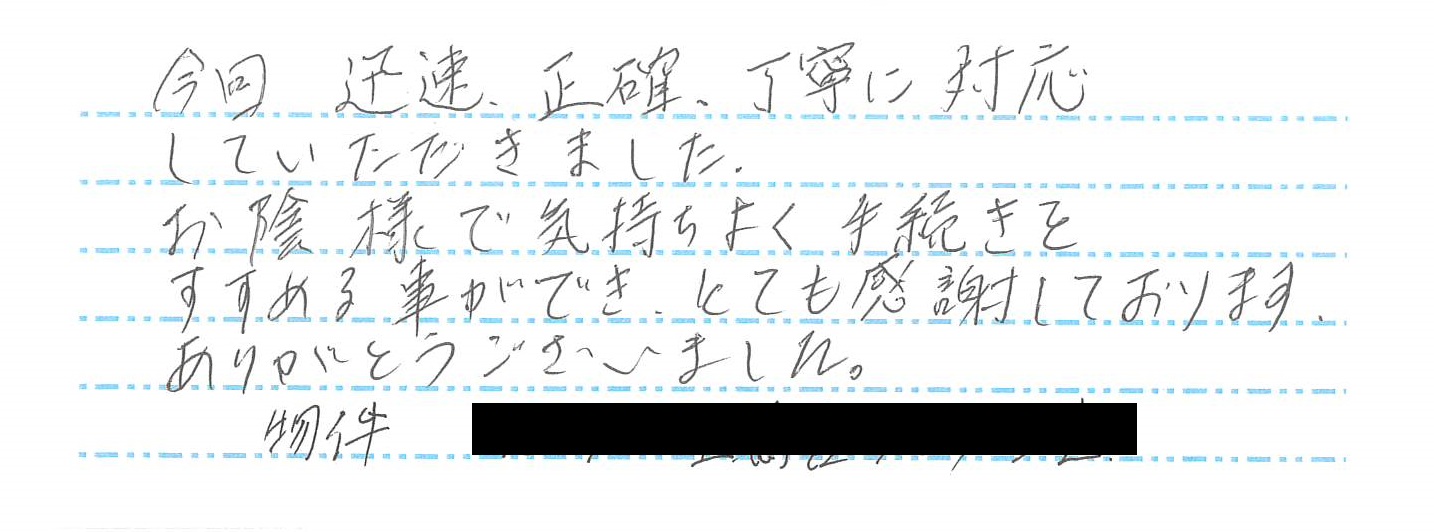 今回 迅速、正確、丁寧に対応
していただきました.
お陰様で気持ちよく手続きを
すすめる事ができ、とても感謝しております.
ありがとうございました。
物件